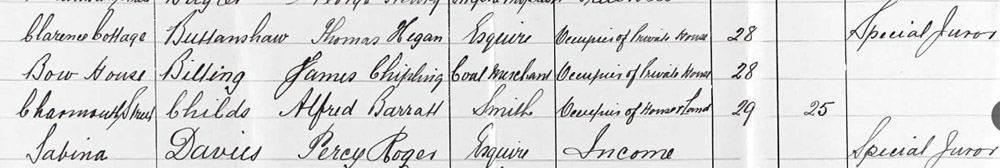 Clarence Cottage Buttanshaw Thomas Hegan Esquire Occupier of Private House 28 Special Juror
Bow House Billing James Chipling Coal Merchant Occupier of Private House 28
Charmouth Street Childs Alfred Barratt Smith Occupier of House & Land 29 25
Sabina Davies Percy Roger Esquire Income Special Juror